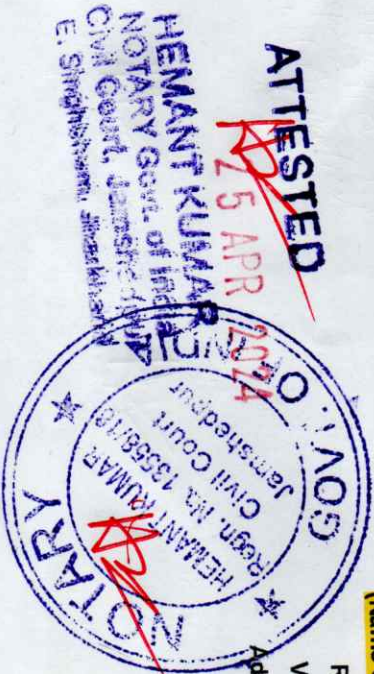 ATTESTED
25 APR 2024
HEMANT KUMAR
NOTARY Govt. of India
Civil Court, Jamshedpur
E. Singhbhum, Jharkhand
GOVT. OF INDIA
HEMANT KUMAR
Regn. No.
Civil Court
Jamshedpur
NOTARY
(Name